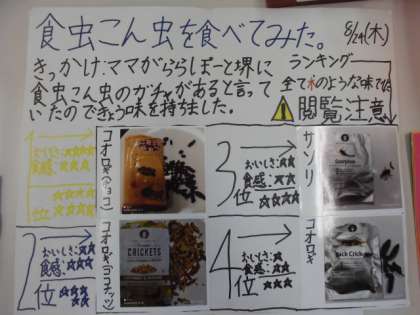 食虫こん虫を食べてみた。
8/24(木)
きっかけ:ママがららぽーと堺に
食虫こん虫のガチャがあると言って
いたのできょう味を持ちました。
ランキング
全て木のような味でした
閲覧注意
おいしさ:☆☆
食感:☆☆☆
位
コオロギ(チョコ)
3位
おいしさ:☆☆
食感:☆☆☆
サソリ
Scorpion
2位
おいしさ:☆☆
食感:☆☆☆
コオロギ(ココナッツ)
CRICKETS
4位
おいしさ:☆
食感:☆☆
コオロギ